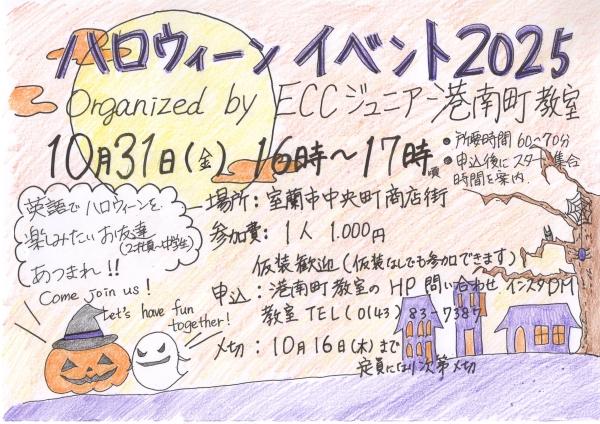 ハロウィーン イベント2025
Organized by ECCジュニアー港南町教室
10月31日(金) 16時〜17時頃
•所要時間 60〜70分
•申込後にスタート集合
時間を案内.
英語でハロウィーンを
楽しみたいお友達
(2才頃〜中学生)
あつまれ!!
Come join us!
Let's have fun
together!
場所:室蘭市中央町商店街
参加費:1人 1.000円
仮装歓迎(仮装なしでも参加できます)
申込:港南町教室のHP問い合わせ インスタDM
教室TEL(0143)83-7387
〆切:10月16日(木)まで
定員になり次第〆切